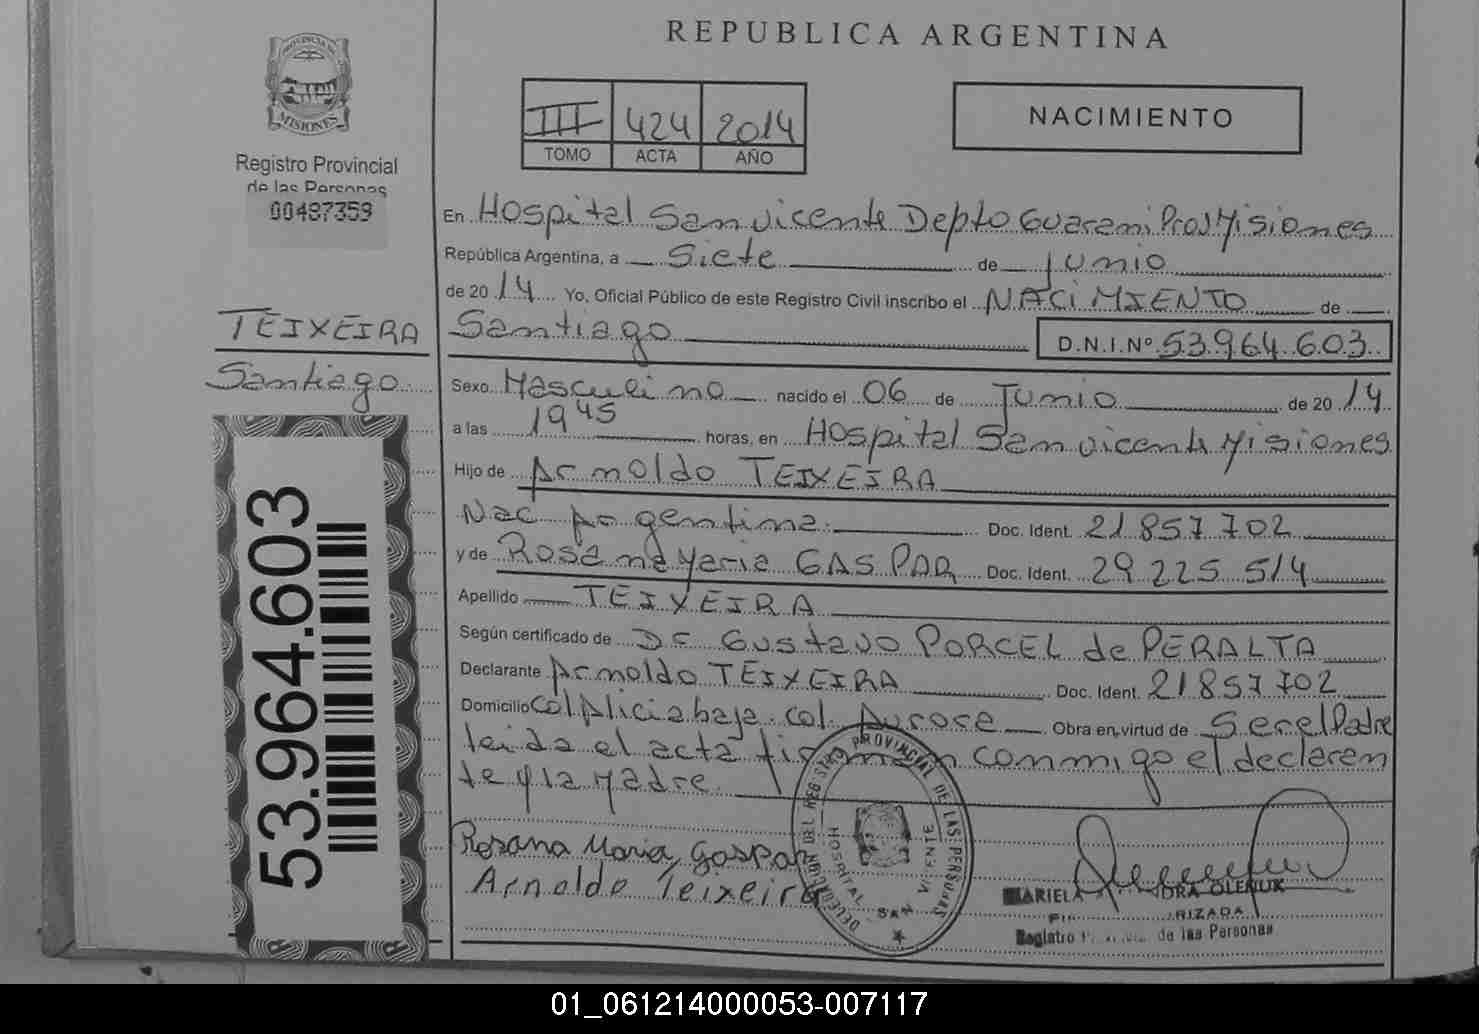 REPUBLICA ARGENTINA
PROVINCIA DE
MISIONES
Registro Provincial
de las Personas
00487359
III 424 2014
TOMO ACTA AÑO
NACIMIENTO
En Hospital San Vicente Depto Guarani Prov Misiones
República Argentina, a Siete de Junio
de 2014 Yo, Oficial Público de este Registro Civil inscribo el NACIMIENTO de
Santiago D.N.I.Nº 53.964.603
TEIXEIRA
Santiago
Sexo Masculino nacido el 06 de Junio de 2014
a las 19 45 horas, en Hospital San Vicente Misiones
Hijo de Arnoldo TEIXEIRA
Nac Argentina. Doc. Ident. 21 857 702
y de Rosana Maria GASPAR Doc. Ident. 29 225 514
Apellido TEIXEIRA
Según certificado de Dr Gustavo PORCEL de PERALTA
Declarante Arnoldo TEIXEIRA Doc. Ident. 21 857 702
Domicilio Col Alicia baja. Col. Aurora Obra en virtud de Ser el Padre
leida el acta firman conmigo el declaran
te y la Madre.
Rosana Maria Gaspar
Arnoldo Teixeira
DELEGACION DEL REGISTRO PROVINCIAL DE LAS PERSONAS
HOSPITAL SAN VICENTE
MARIELA OLENIUK
Registro de las Personas
53.964.603
01_061214000053-007117